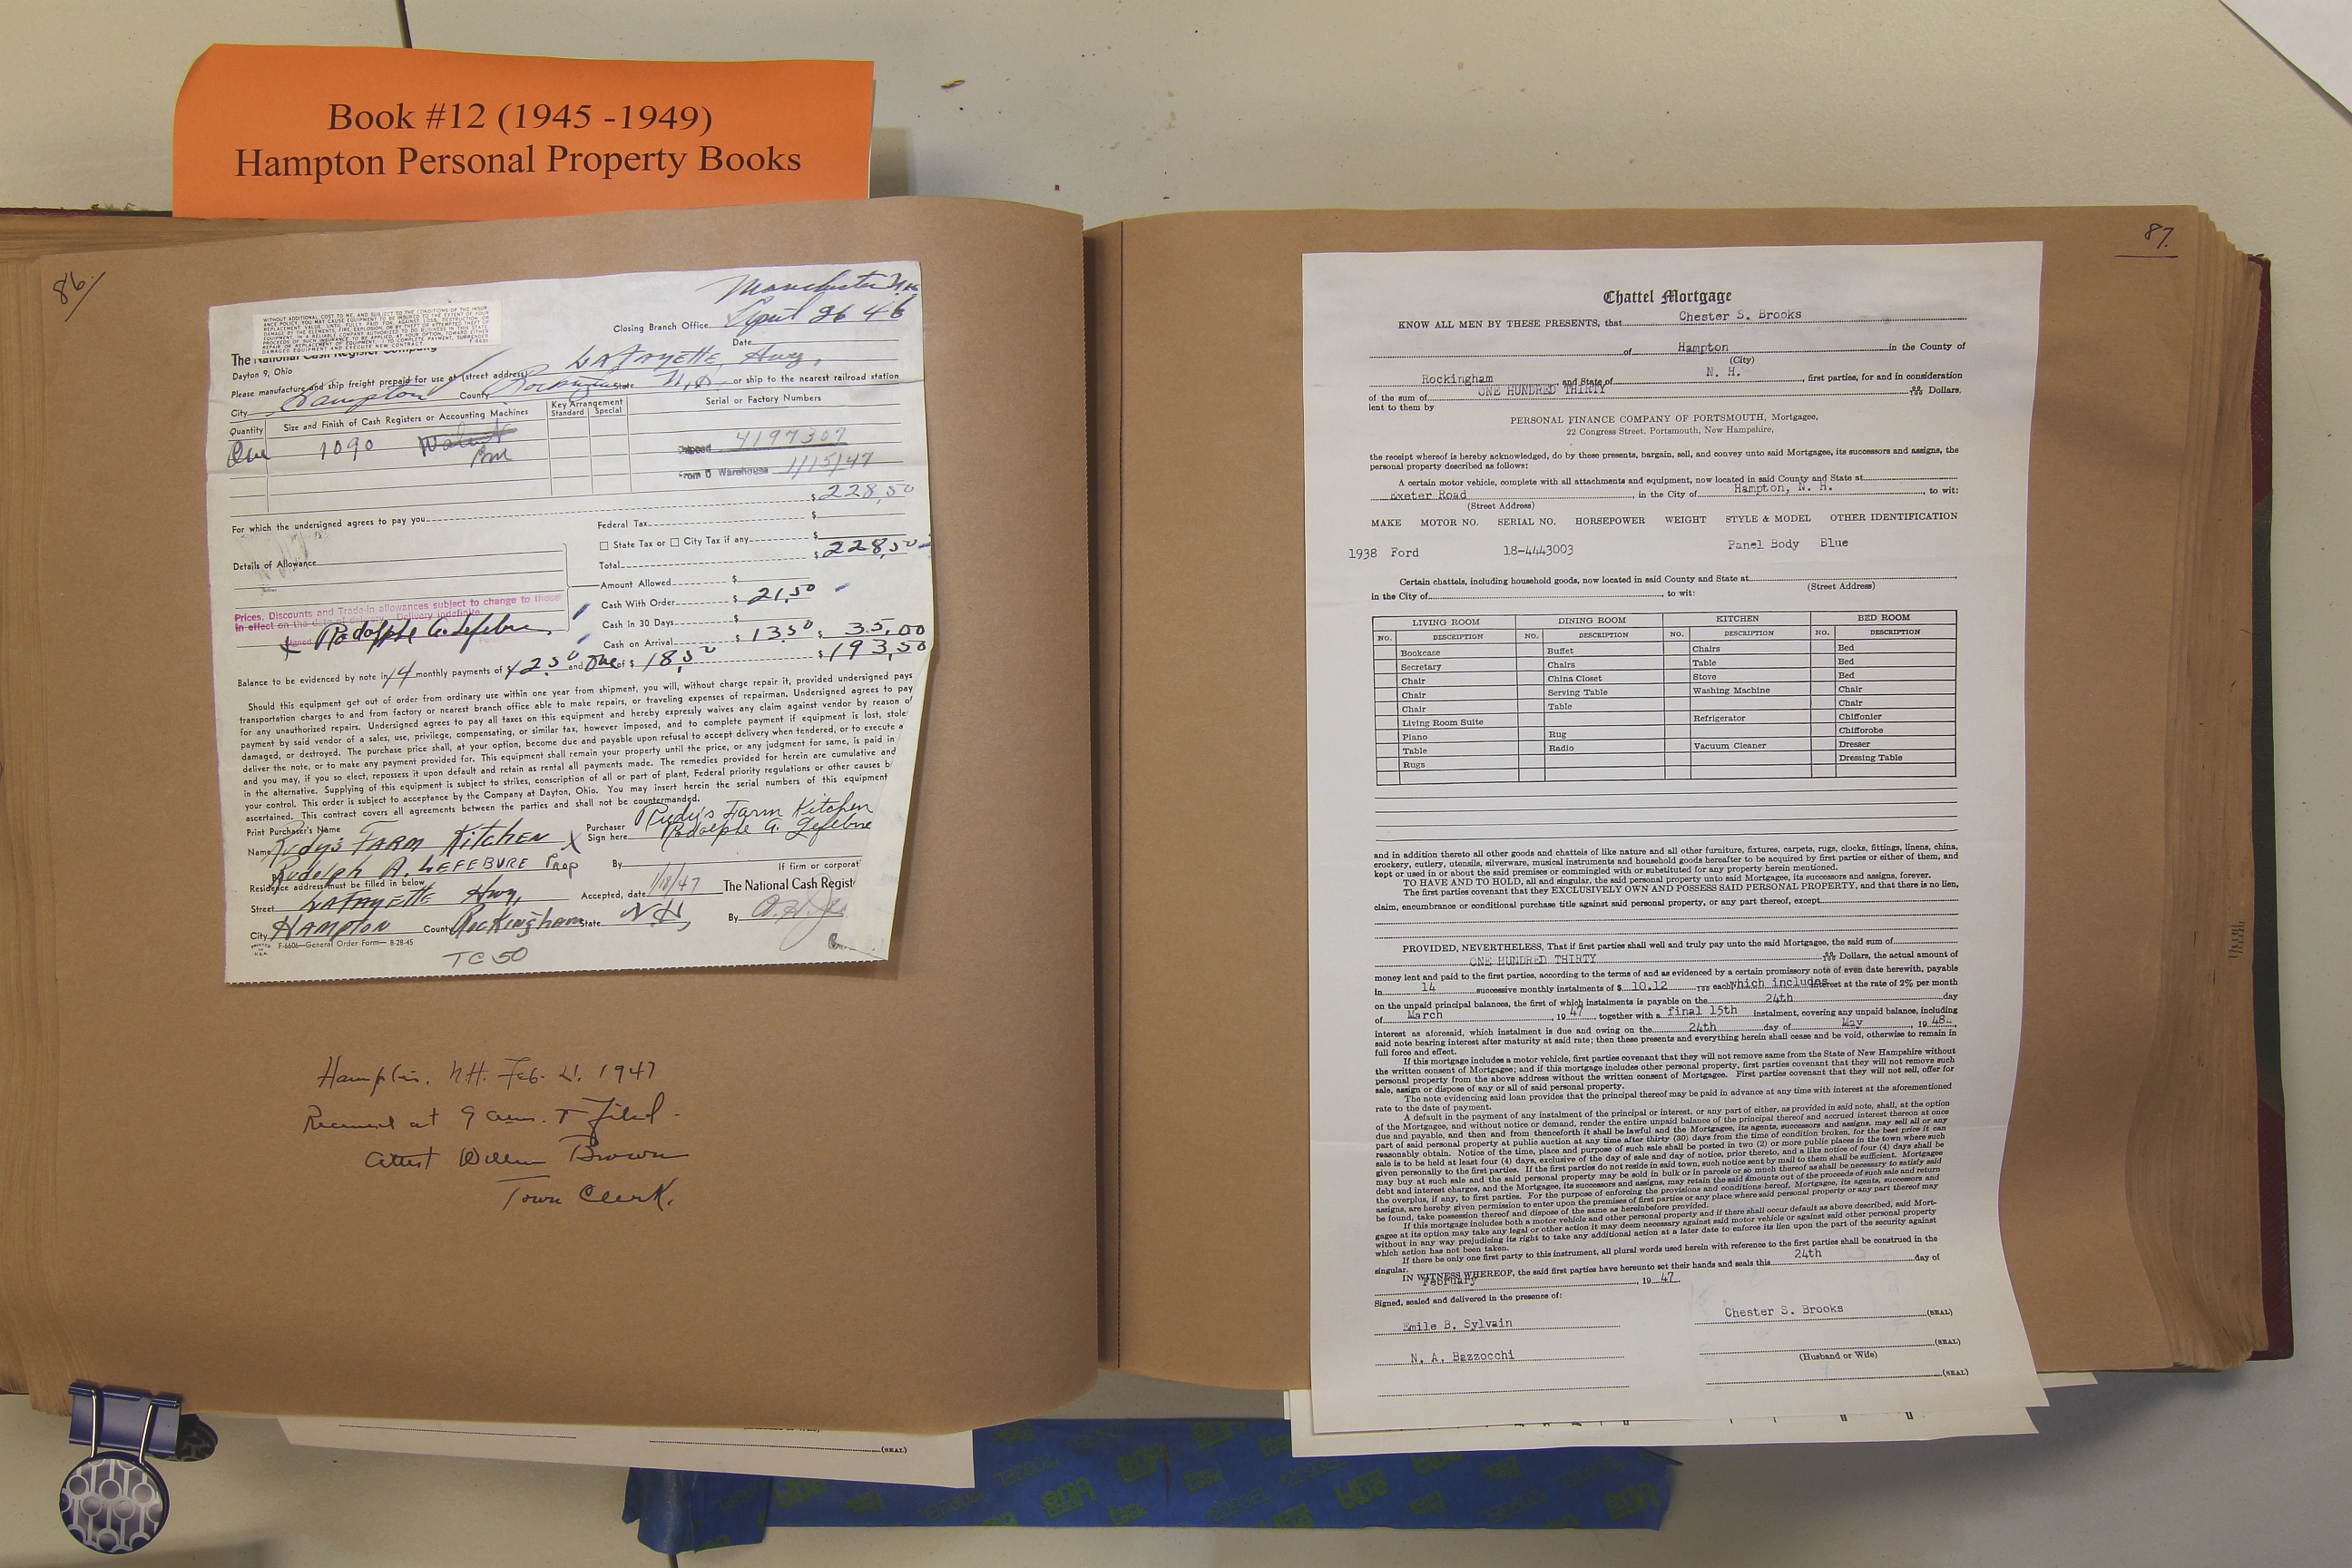 Book #12 (1945 -1949)
Hampton Personal Property Books
86/
Manchester N.H.
Closing Branch Office
April 26 46
Date
WITHOUT ADDITIONAL COST TO ME, AND SUBJECT TO THE CONDITIONS OF THE INSUR-
ANCE POLICY, YOU MAY CAUSE EQUIPMENT TO BE INSURED TO THE EXTENT OF YOUR
REPLACEMENT VALUE, UNTIL FULLY PAID FOR AGAINST LOSS, DESTRUCTION OR
DAMAGE BY THE ELEMENTS, FIRE, EXPLOSION, OR BY THEFT OR ATTEMPTED THEFT OF
EQUIPMENT, IN A RELIABLE COMPANY AUTHORIZED TO DO BUSINESS IN THIS STATE,
PROCEEDS OF SUCH INSURANCE TO BE APPLIED, AT YOUR OPTION, TOWARD EITHER
REPAIR OR REPLACEMENT OF EQUIPMENT. I TO COMPLETE PAYMENT, SURRENDER
DAMAGED EQUIPMENT AND EXECUTE NEW CONTRACT. F-6601
The National Cash Register Company
Dayton 9, Ohio
LAFAYETTE Hwy,
Please manufacture and ship freight prepaid for use at (street address)
City Hampton County Rockingham State N.H. or ship to the nearest railroad station
Quantity Size and Finish of Cash Registers or Accounting Machines Key Arrangement Standard Special Serial or Factory Numbers
One 1090 Walnut
Shipped 4197307
From D Warehouse 1/15/47
For which the undersigned agrees to pay you $ 228.50
Federal Tax $
State Tax or City Tax if any $
Details of Allowance
Total $ 228.50
Amount Allowed $
Cash With Order $ 21.50
Prices, Discounts and Trade-in allowances subject to change to those
in effect on the date of delivery. Delivery indefinite.
Cash in 30 Days $
Signed x Rodolphe G. Lefebvre
Cash on Arrival $ 13.50 $ 35.00
Balance to be evidenced by note in 14 monthly payments of $ 12.50 and One of $ 18.50 $ 193.50
Should this equipment get out of order from ordinary use within one year from shipment, you will, without charge repair it, provided undersigned pays
transportation charges to and from factory or nearest branch office able to make repairs, or traveling expenses of repairman. Undersigned agrees to pay
for any unauthorized repairs. Undersigned agrees to pay all taxes on this equipment and hereby expressly waives any claim against vendor by reason of
payment by said vendor of a sales, use, privilege, compensating, or similar tax, however imposed, and to complete payment if equipment is lost, stole
damaged, or destroyed. The purchase price shall, at your option, become due and payable upon refusal to accept delivery when tendered, or to execute a
deliver the note, or to make any payment provided for. This equipment shall remain your property until the price, or any judgment for same, is paid in
and you may, if you so elect, repossess it upon default and retain as rental all payments made. The remedies provided for herein are cumulative and
in the alternative. Supplying of this equipment is subject to strikes, conscription of all or part of plant, Federal priority regulations or other causes b
your control. This order is subject to acceptance by the Company at Dayton, Ohio. You may insert herein the serial numbers of this equipment
ascertained. This contract covers all agreements between the parties and shall not be countermanded.
Print Purchaser's Name
Name Rudy's FARM KITCHEN
Rudolph A. LEFEBURE Prop
x Purchaser Sign here Rudy's Farm Kitchen
Rodolphe G. Lefebvre
By If firm or corporat
Residence address must be filled in below
Street LAFAYETTE Hwy,
Accepted, date 1/18/47 The National Cash Regist
City HAMPTON County Rockingham State N.H,
By
F-6606—General Order Form— 8-28-45
TC 50
Hampton, N.H. Feb. 21, 1947
Received at 9 a.m. & Filed -
attest William Brown
Town Clerk.
87.
Chattel Mortgage
KNOW ALL MEN BY THESE PRESENTS, that Chester S. Brooks
of Hampton in the County of
(City)
Rockingham and State of N. H. , first parties, for and in consideration
of the sum of ONE HUNDRED THIRTY Dollars.
lent to them by
PERSONAL FINANCE COMPANY OF PORTSMOUTH, Mortgagee,
22 Congress Street, Portsmouth, New Hampshire,
the receipt whereof is hereby acknowledged, do by these presents, bargain, sell, and convey unto said Mortgagee, its successors and assigns, the
personal property described as follows:
A certain motor vehicle, complete with all attachments and equipment, now located in said County and State at
Exeter Road , in the City of Hampton, N. H. , to wit:
(Street Address)
MAKE MOTOR NO. SERIAL NO. HORSEPOWER WEIGHT STYLE & MODEL OTHER IDENTIFICATION
1938 Ford 18-4443003 Panel Body Blue
Certain chattels, including household goods, now located in said County and State at
(Street Address)
in the City of , to wit:
LIVING ROOM DINING ROOM KITCHEN BED ROOM
NO. DESCRIPTION NO. DESCRIPTION NO. DESCRIPTION NO. DESCRIPTION
Bookcase Buffet Chairs Bed
Secretary Chairs Table Bed
Chair China Closet Stove Bed
Chair Serving Table Washing Machine Chair
Chair Table Chair
Living Room Suite Refrigerator Chiffonier
Piano Rug Chifforobe
Table Radio Vacuum Cleaner Dresser
Rugs Dressing Table
and in addition thereto all other goods and chattels of like nature and all other furniture, fixtures, carpets, rugs, clocks, fittings, linens, china,
crockery, cutlery, utensils, silverware, musical instruments and household goods hereafter to be acquired by first parties or either of them, and
kept or used in or about the said premises or commingled with or substituted for any property herein mentioned.
TO HAVE AND TO HOLD, all and singular, the said personal property unto said Mortgagee, its successors and assigns, forever.
The first parties covenant that they EXCLUSIVELY OWN AND POSSESS SAID PERSONAL PROPERTY, and that there is no lien,
claim, encumbrance or conditional purchase title against said personal property, or any part thereof, except
PROVIDED, NEVERTHELESS, That if first parties shall well and truly pay unto the said Mortgagee, the said sum of
ONE HUNDRED THIRTY Dollars, the actual amount of
money lent and paid to the first parties, according to the terms of and as evidenced by a certain promissory note of even date herewith, payable
in 14 successive monthly instalments of $ 10.12 each which includes interest at the rate of 2% per month
on the unpaid principal balances, the first of which instalments is payable on the 24th day
of March , 19 47 , together with a final 15th instalment, covering any unpaid balance, including
interest as aforesaid, which instalment is due and owing on the 24th day of May , 19 48 ,
said note bearing interest after maturity at said rate; then these presents and everything herein shall cease and be void, otherwise to remain in
full force and effect.
If this mortgage includes a motor vehicle, first parties covenant that they will not remove same from the State of New Hampshire without
the written consent of Mortgagee; and if this mortgage includes other personal property, first parties covenant that they will not remove such
personal property from the above address without the written consent of Mortgagee. First parties covenant that they will not sell, offer for
sale, assign or dispose of any or all of said personal property.
The note evidencing said loan provides that the principal thereof may be paid in advance at any time with interest at the aforementioned
rate to the date of payment.
A default in the payment of any instalment of the principal or interest, or any part of either, as provided in said note, shall, at the option
of the Mortgagee, and without notice or demand, render the entire unpaid balance of the principal thereof and accrued interest thereon at once
due and payable, and then and from thenceforth it shall be lawful and the Mortgagee, its agents, successors and assigns, may sell all or any
part of said personal property at public auction at any time after thirty (30) days from the time of condition broken, for the best price it can
reasonably obtain. Notice of the time, place and purpose of such sale shall be posted in two (2) or more public places in the town where such
sale is to be held at least four (4) days, exclusive of the day of sale and day of notice, prior thereto, and a like notice of four (4) days shall be
given personally to the first parties. If the first parties do not reside in said town, such notice sent by mail to them shall be sufficient. Mortgagee
may buy at such sale and the said personal property may be sold in bulk or in parcels or so much thereof as shall be necessary to satisfy said
debt and interest charges, and the Mortgagee, its successors and assigns, may retain the said amounts out of the proceeds of such sale and return
the overplus, if any, to first parties. For the purpose of enforcing the provisions and conditions hereof, Mortgagee, its agents, successors and
assigns, are hereby given permission to enter upon the premises of first parties or any place where said personal property or any part thereof may
be found, take possession thereof and dispose of the same as hereinbefore provided.
If this mortgage includes both a motor vehicle and other personal property and if there shall occur default as above described, said Mort-
gagee at its option may take any legal or other action it may deem necessary against said motor vehicle or against said other personal property
without in any way prejudicing its right to take any additional action at a later date to enforce its lien upon the part of the security against
which action has not been taken.
If there be only one first party to this instrument, all plural words used herein with reference to the first parties shall be construed in the
singular.
IN WITNESS WHEREOF, the said first parties have hereunto set their hands and seals this 24th day of
February , 19 47 .
Signed, sealed and delivered in the presence of:
Emile B. Sylvain Chester S. Brooks (SEAL)
N. A. Bazzocchi (SEAL)
(Husband or Wife)
(SEAL)
(SEAL)